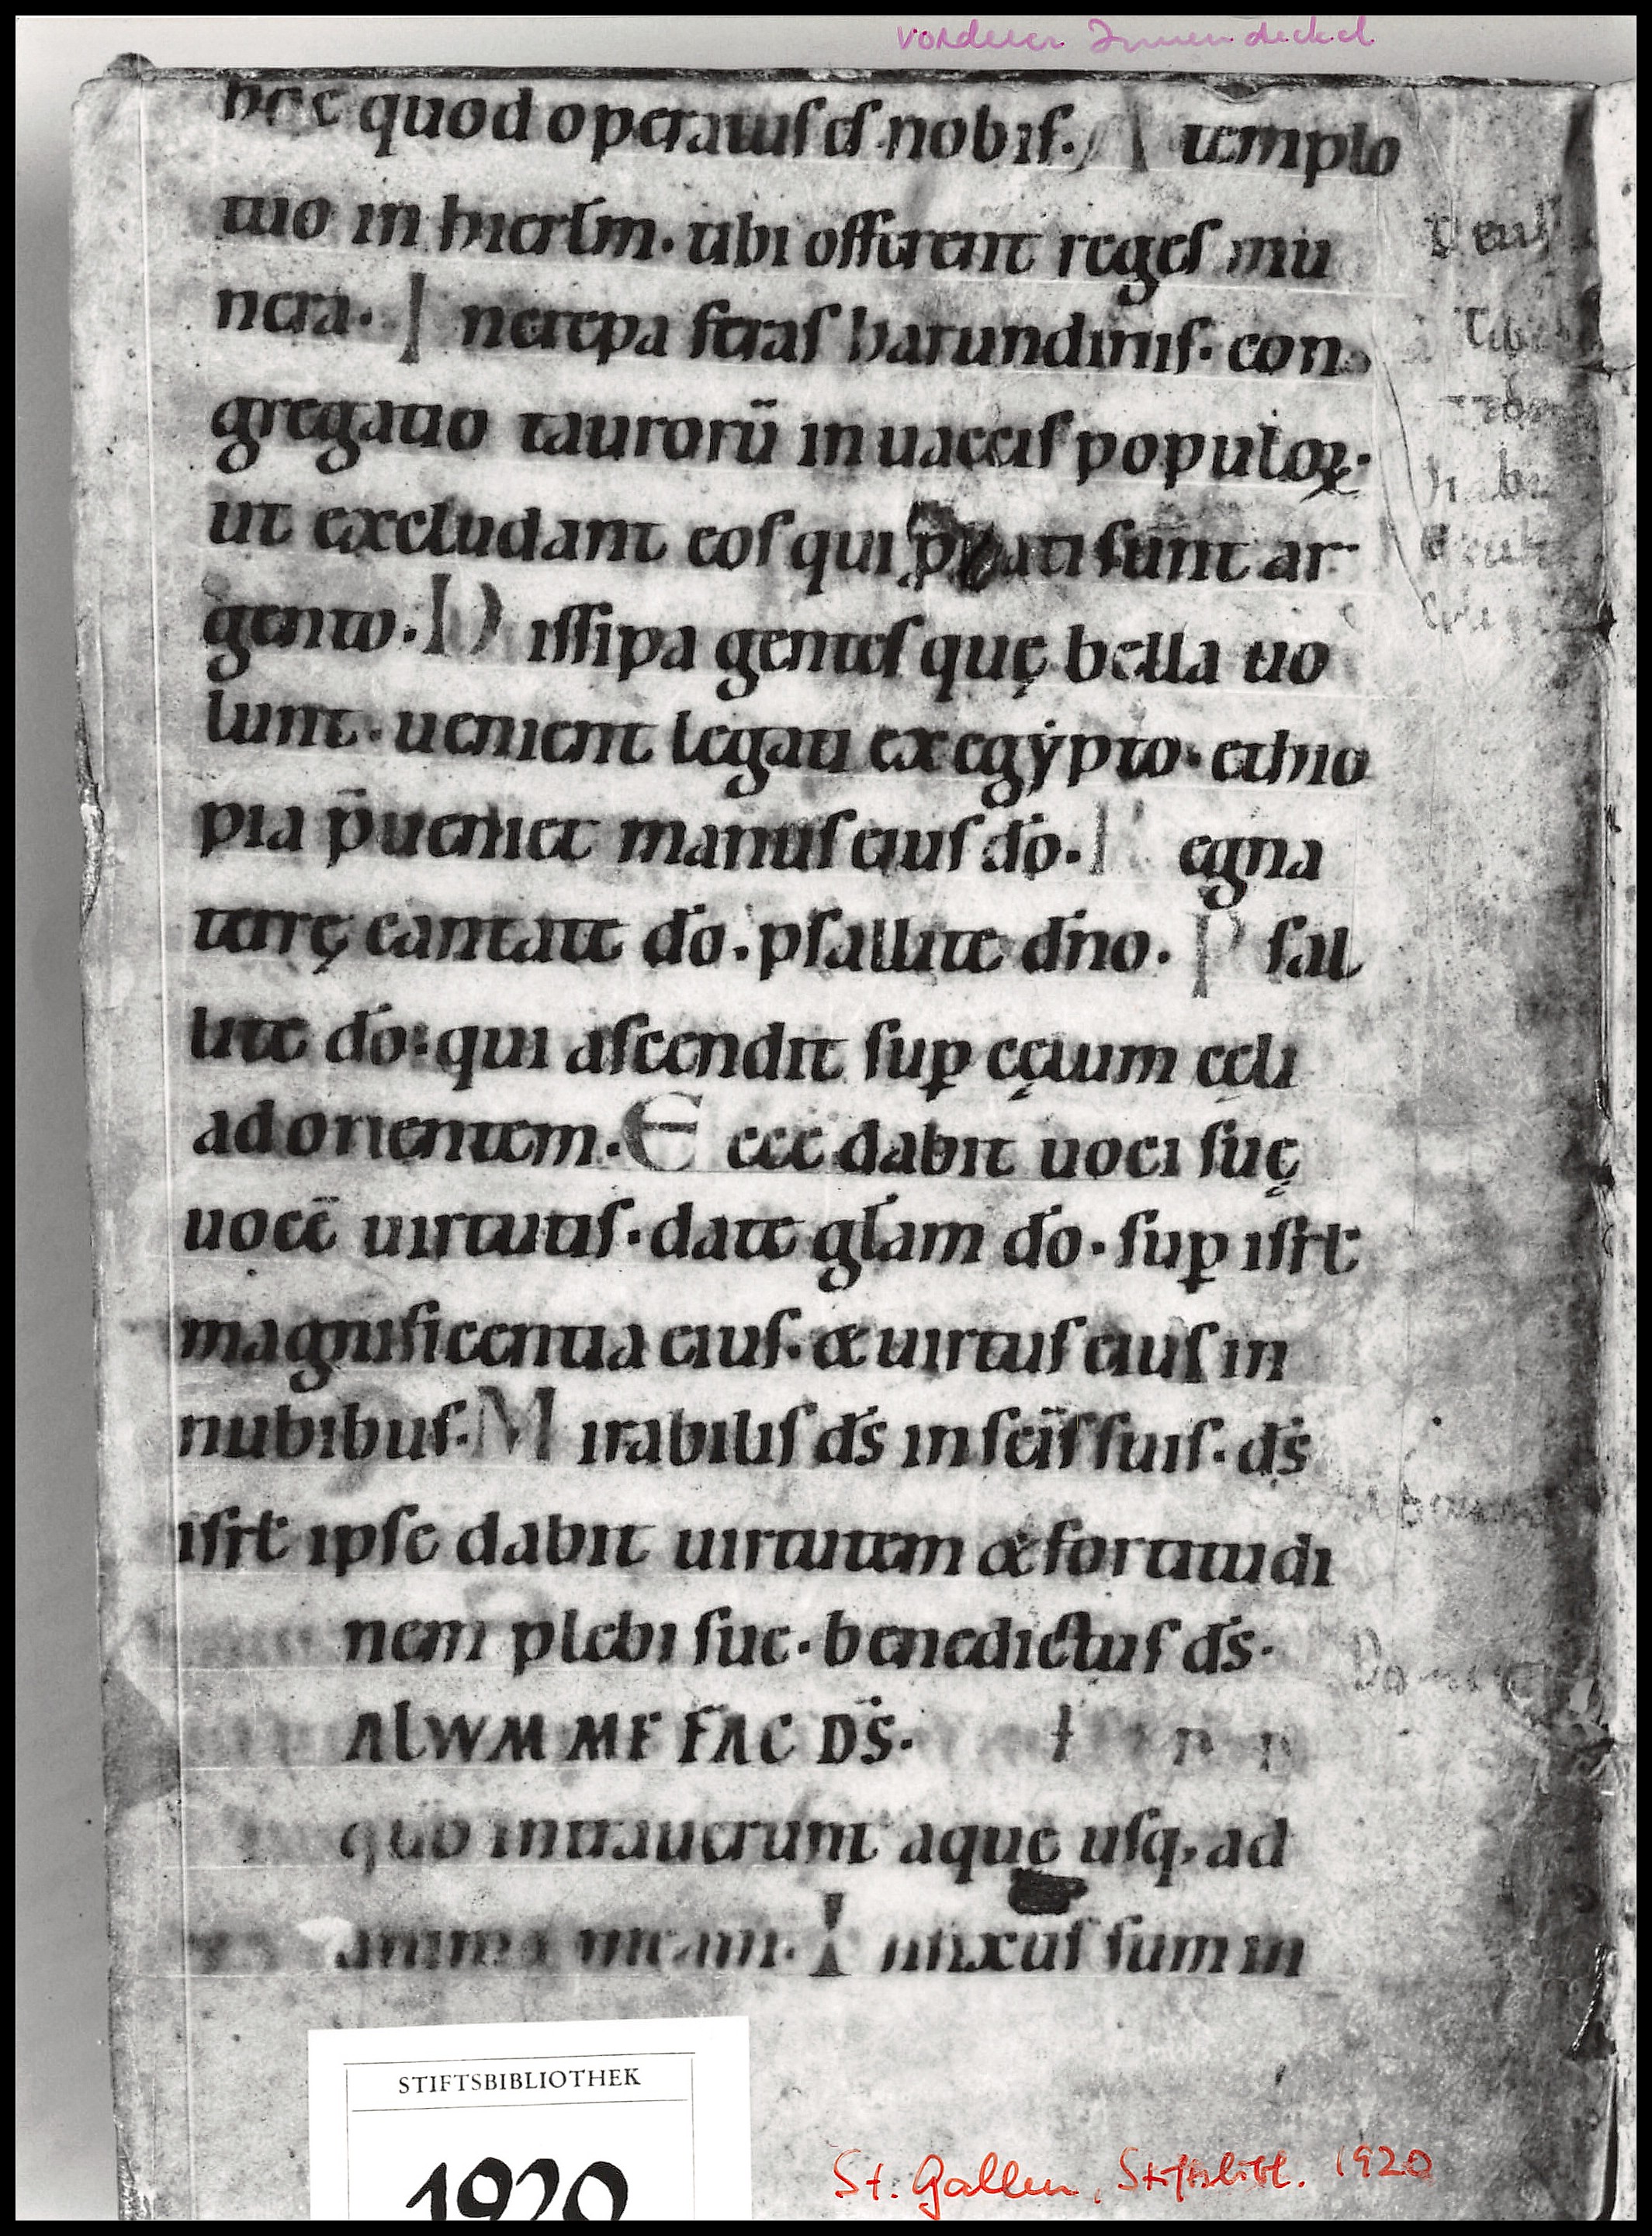 vorderer Innendeckel
hoc quod operatuſ eſ nobiſ. A templo
tuo in hierłm. tibi offerent regeſ mu
nera. I ncrepa feraſ harundiniſ. con
gregatio taurorū in uacciſ populoꝝ.
ut excludant eoſ qui ꝓbati sunt ar
gento. D iſſipa genteſ quę bella uo
lunt. uenient legati ex egẏpto. ethio
pia p̄ueniet manuſ eiuſ dō. R egna
terrę cantate dō. pſallite dn̄o. P ſal
lite dō: qui aſcendit ſuꝑ cęlum cęli
ad orientem. E cce dabit uoci ſuę
uocē uirtutiſ. date głam dō. ſuꝑ iſrł
magnificentia eiuſ. & uirtuſ eiuſ in
nubibuſ. M irabiliſ dſ̄ in ſcīſ ſuiſ. dſ̄
iſrł ipſe dabit uirtutem & fortitudi
nem plebi ſue. benedictuſ dſ̄.
ALVVM ME FAC DS̄.
quō intrauerunt aque uſq; ad
animā meam. I nfixuſ ſum in
STIFTSBIBLIOTHEK
1920
St. Gallen, Stiftsbibl. 1920